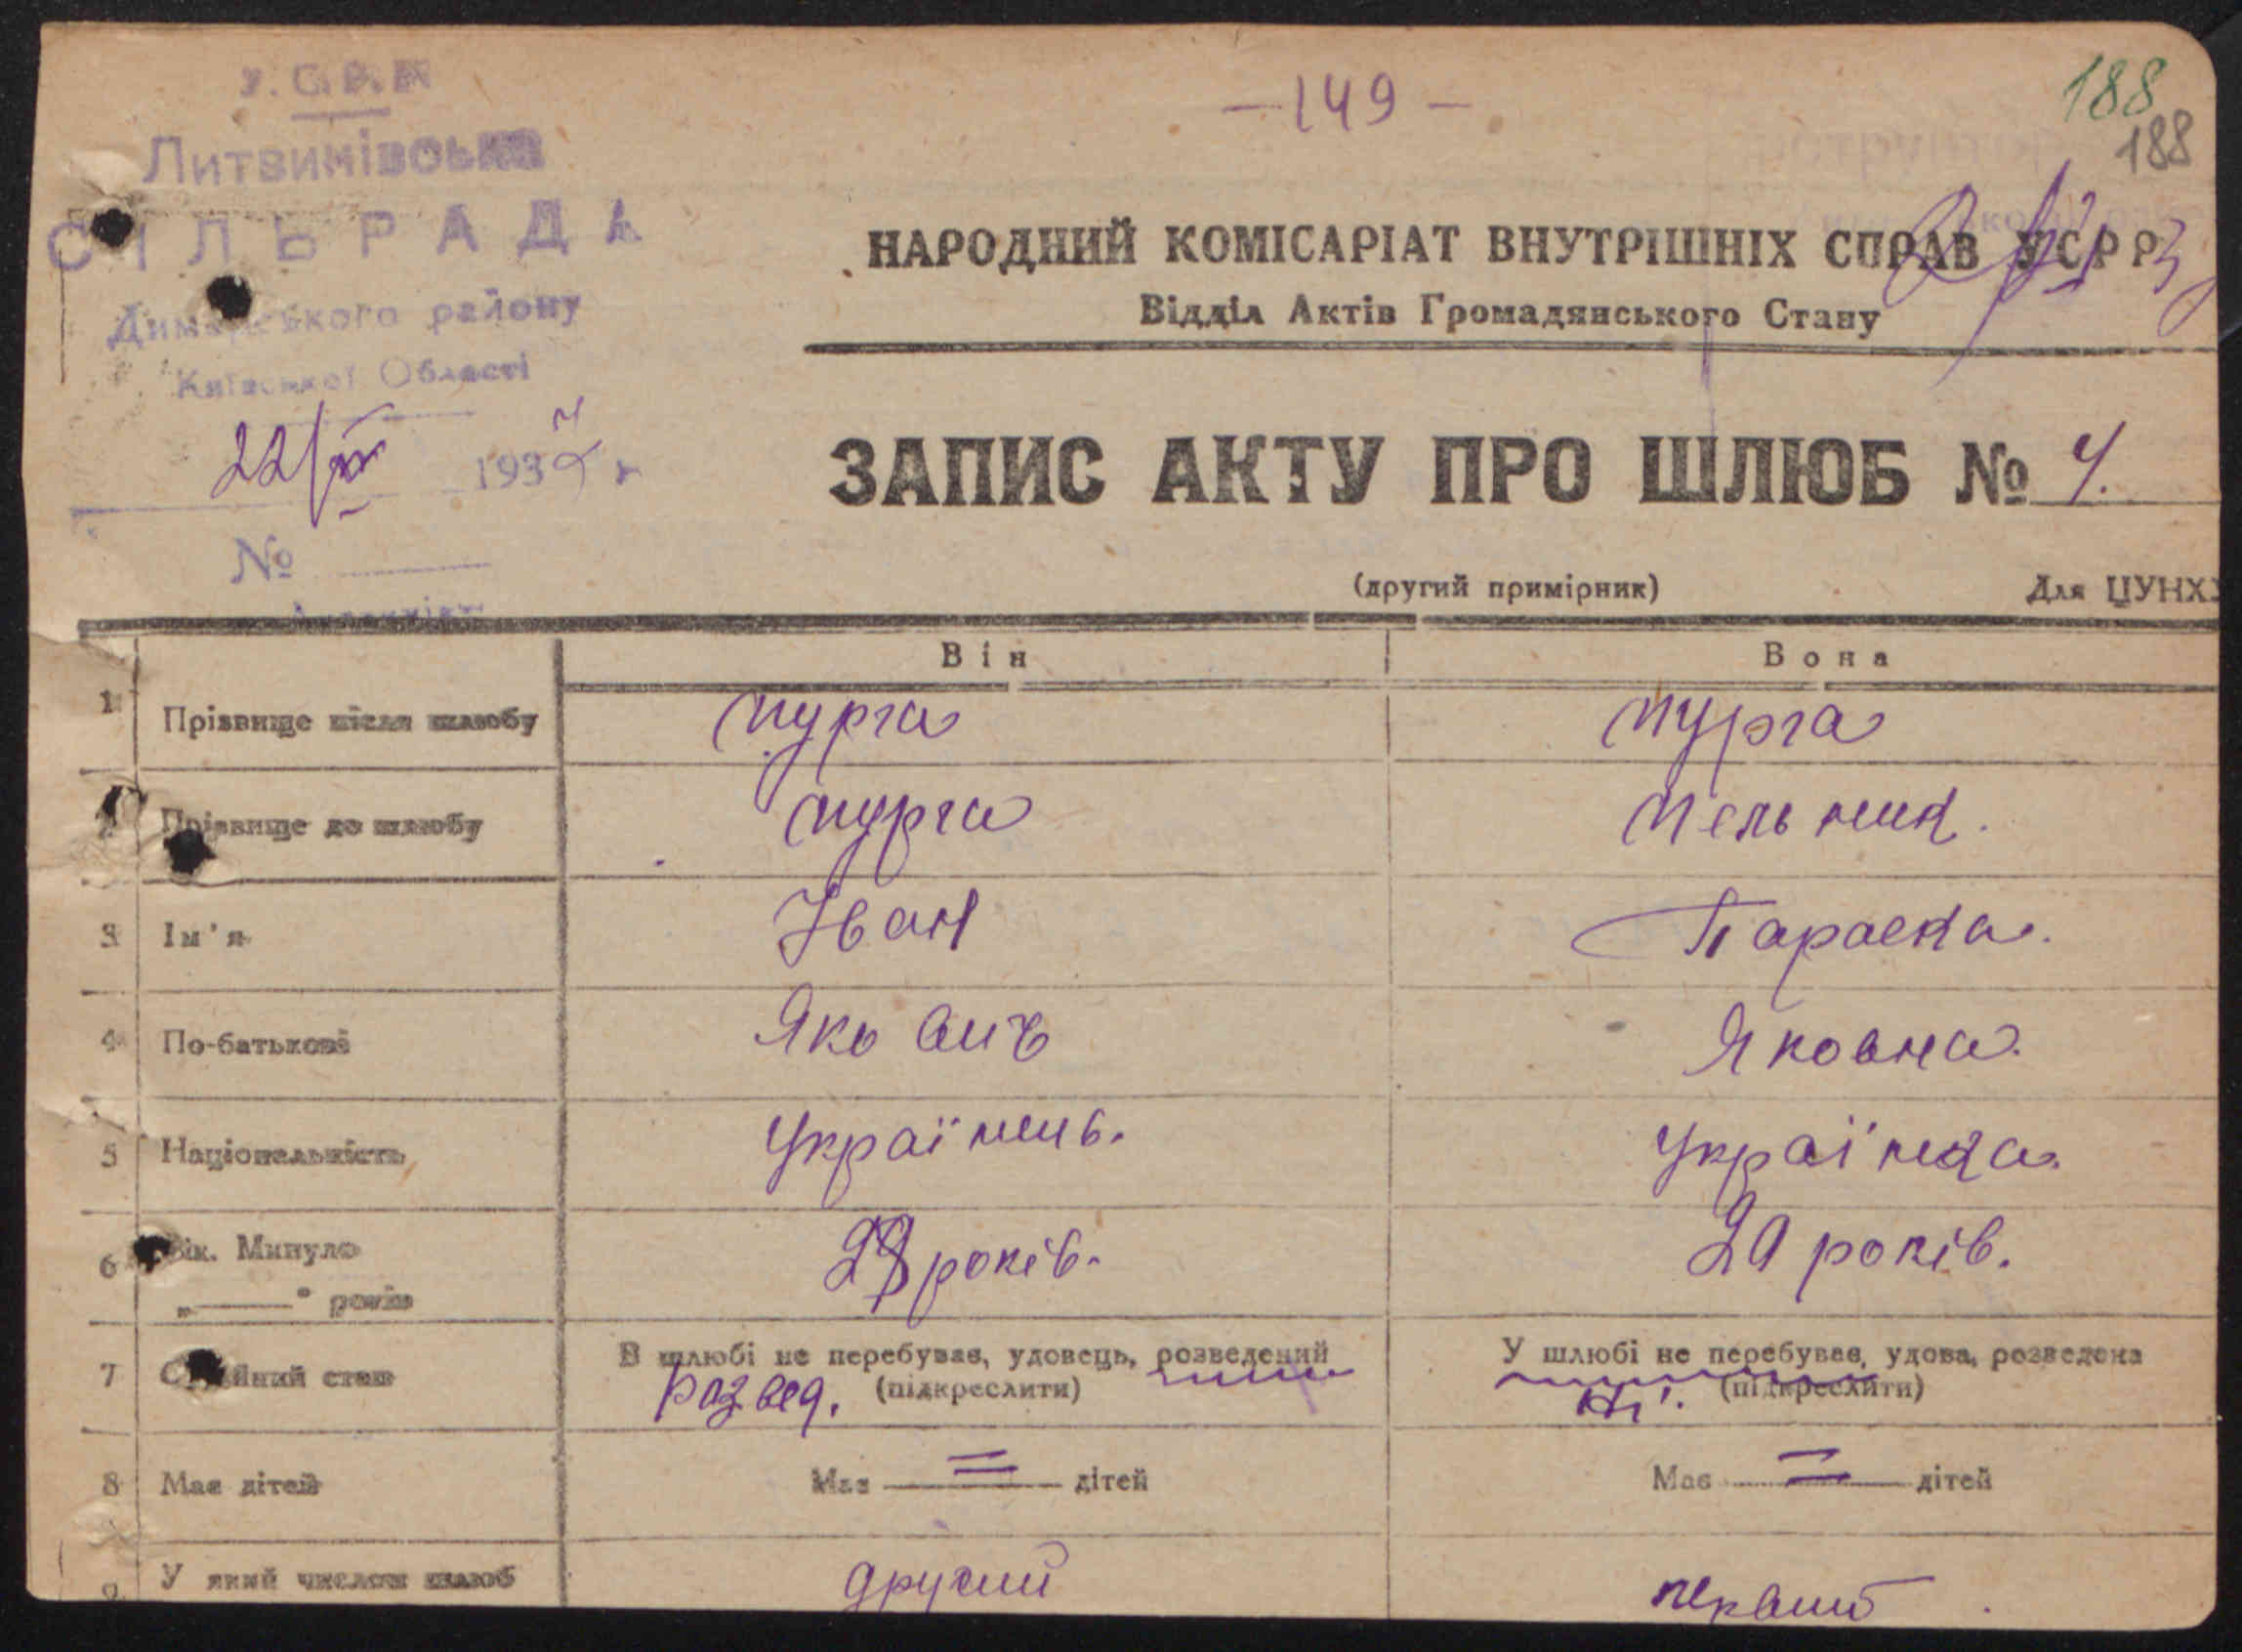 У.С.Р.Р.
Литвинівська
СІЛЬРАДА
Димерського району
Київської Області
22/ 193 р
№
— 149 —
188
188
НАРОДНИЙ КОМІСАРІАТ ВНУТРІШНІХ СПРАВ УСРР
Відділ Актів Громадянського Стану
ЗАПИС АКТУ ПРО ШЛЮБ № 4.
(другий примірник) Для ЦУНХУ
Він Вона
1 Прізвище після шлюбу Мурга Мурга
2 Прізвище до шлюбу Мурга Мельник.
3 Ім'я Іван Параска.
4 По-батькові Яковвич Яковна.
5 Національність Українець. Українка.
6 Вік. Минуло років. 20 років.
„——" років
7 Сімейний стан В шлюбі не перебував, удовець, розведений У шлюбі не перебував, удова, розведена
Развед. (підкреслити) Ні. (підкреслити)
8 Має дітей Має = дітей Має = дітей
9 У який числом шлюб другий первий